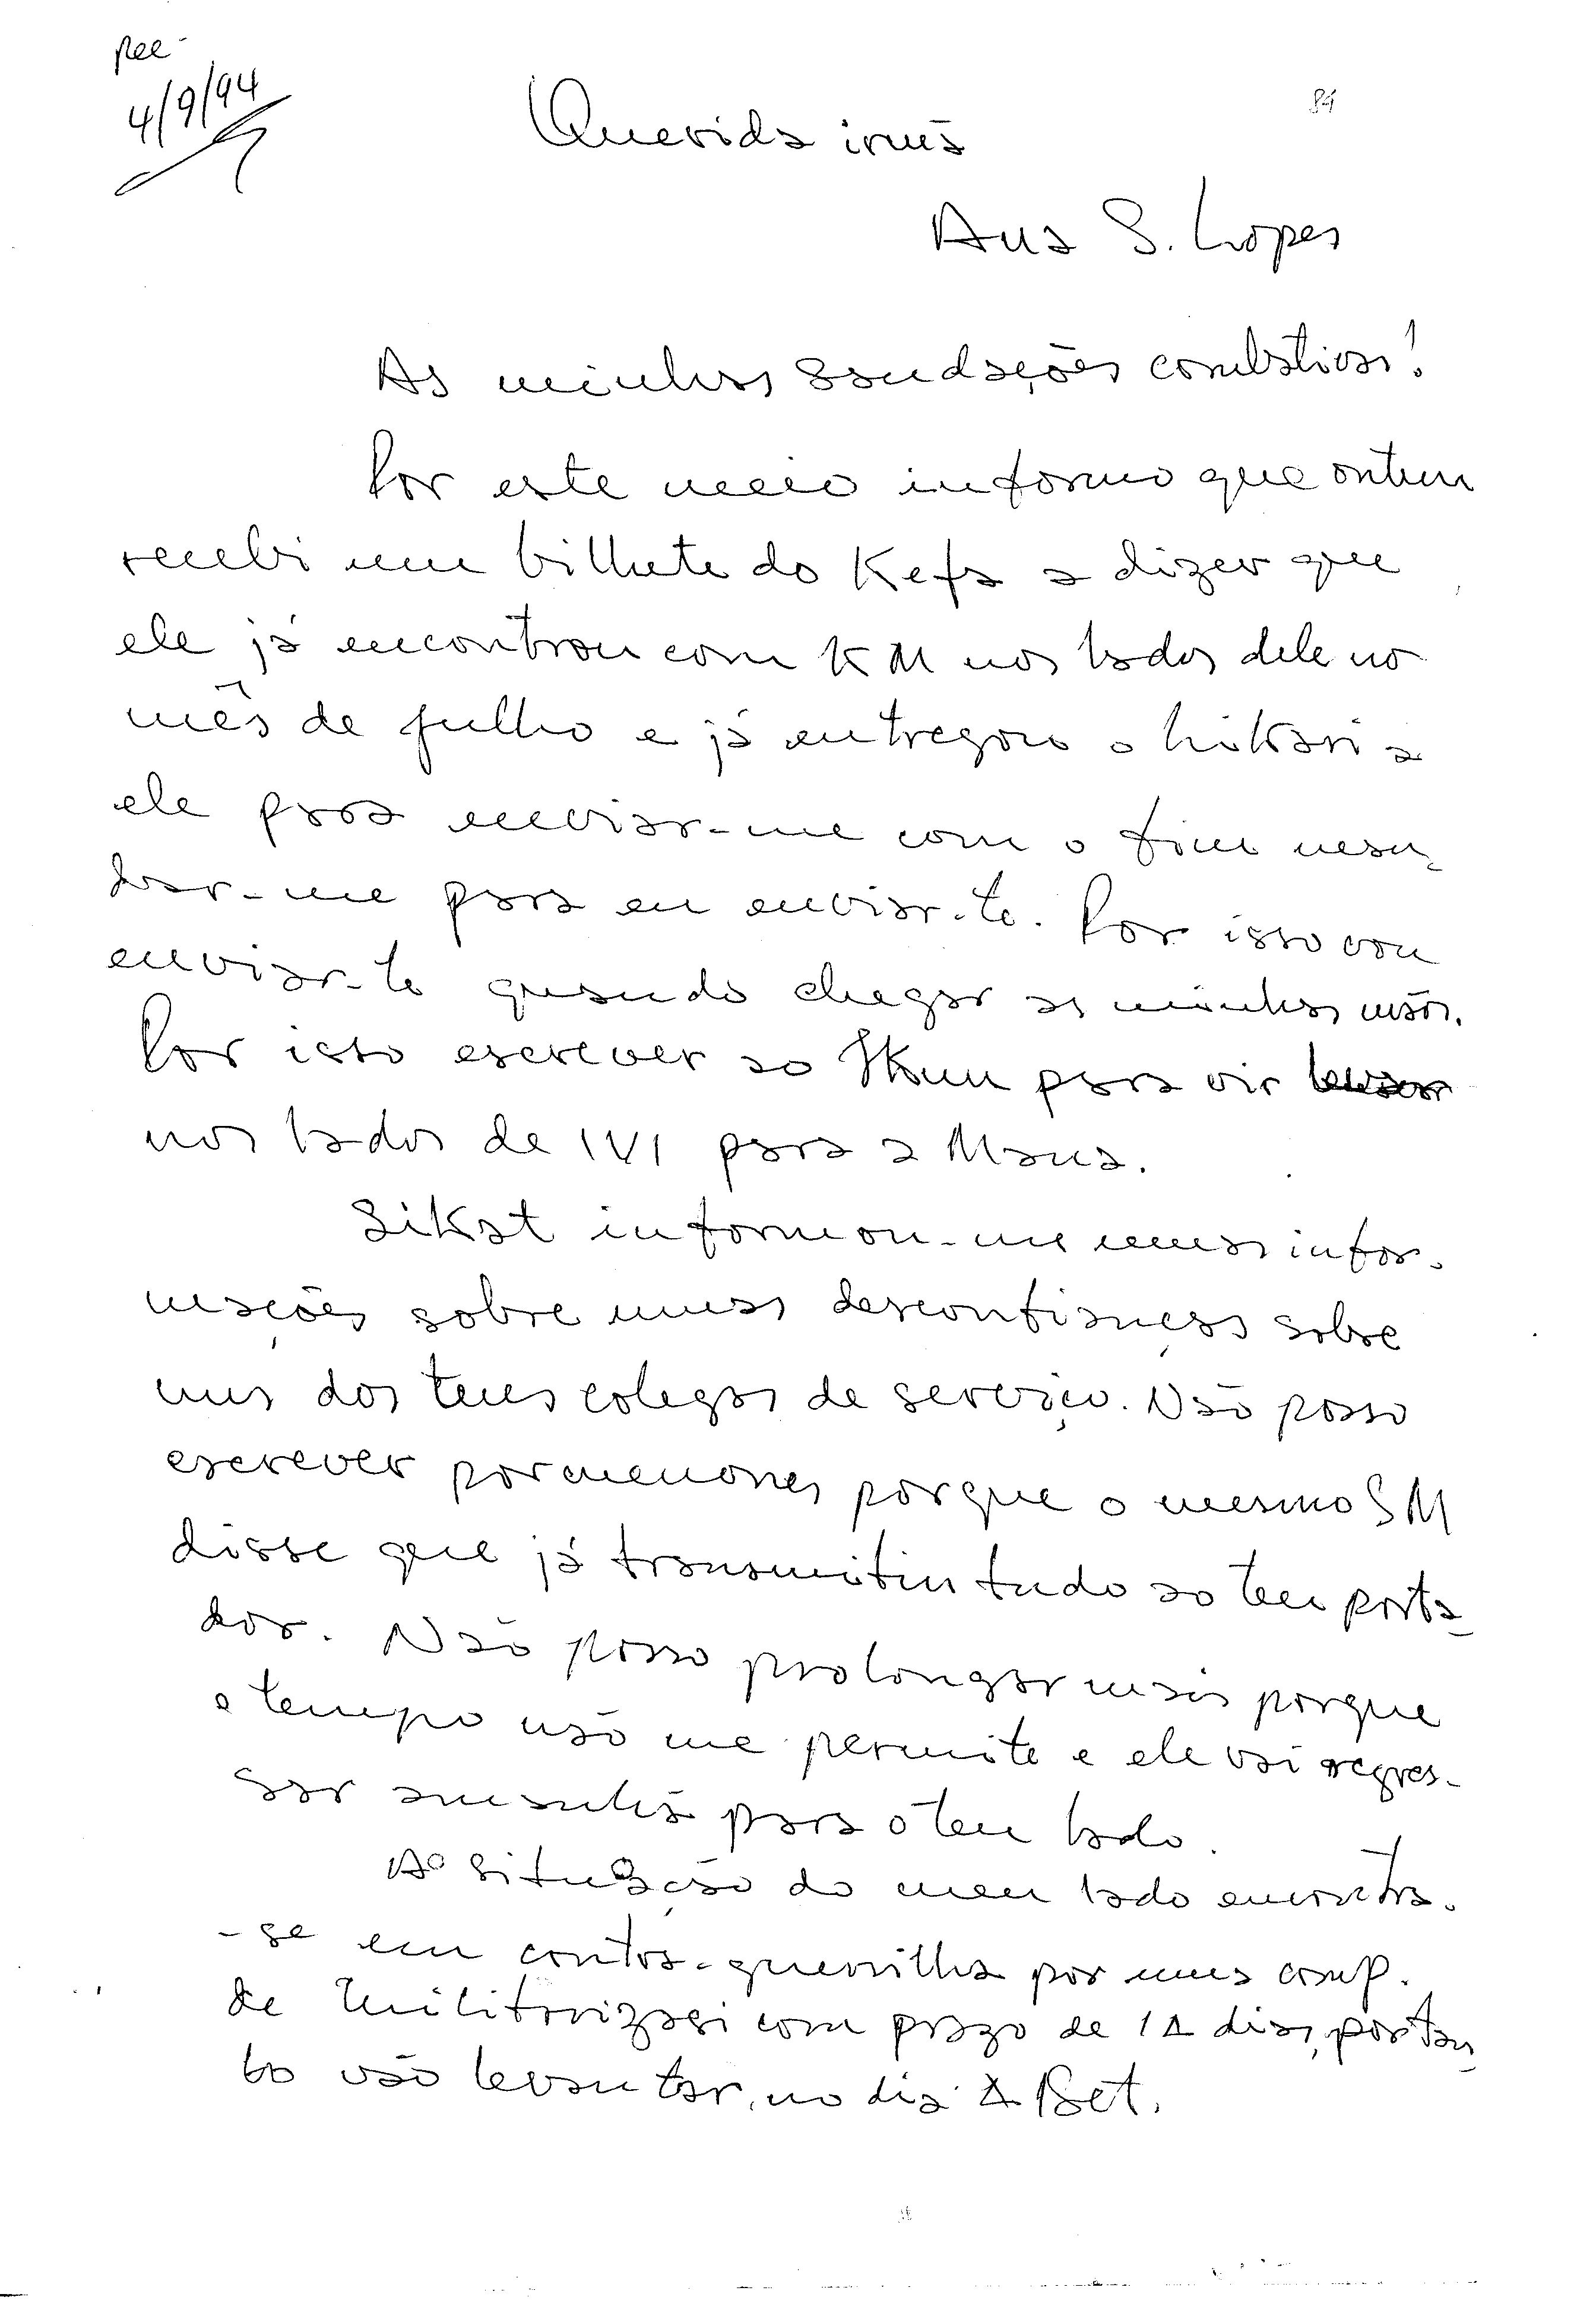 Rec-
4/9/94
84
Querida irmã
Ana S. Lopes
As minhas saudações combativas!
Por este meio informo que ontem
recebi um bilhete do Kefa a dizer que
ele já encontrou com KM nos lados dele no
mês de julho e já entregou o hikari a
ele para enviar-me com o fim
-me para eu enviar-te. Por isso vou
enviar-te quando chegar as minhas mãos.
Por isto escrever ao para vir
nos lados de 141 para a Mana.
Sikat informou-me umas infor-
mações sobre umas desconfianças sobre
uns dos teus colegas de serviço. Não posso
escrever pormenores porque o mesmo SM
disse que já transmitiu tudo ao teu porta-
dor. Não posso prolongar mais porque
o tempo não me permite e ele vai regres-
sar amanhã para o teu lado.
A situação do meu lado encontra-
-se em contra-guerrilha por uma comp.
de com prazo de 14 dias, portan-
to vão levantar, no dia 4 Set.